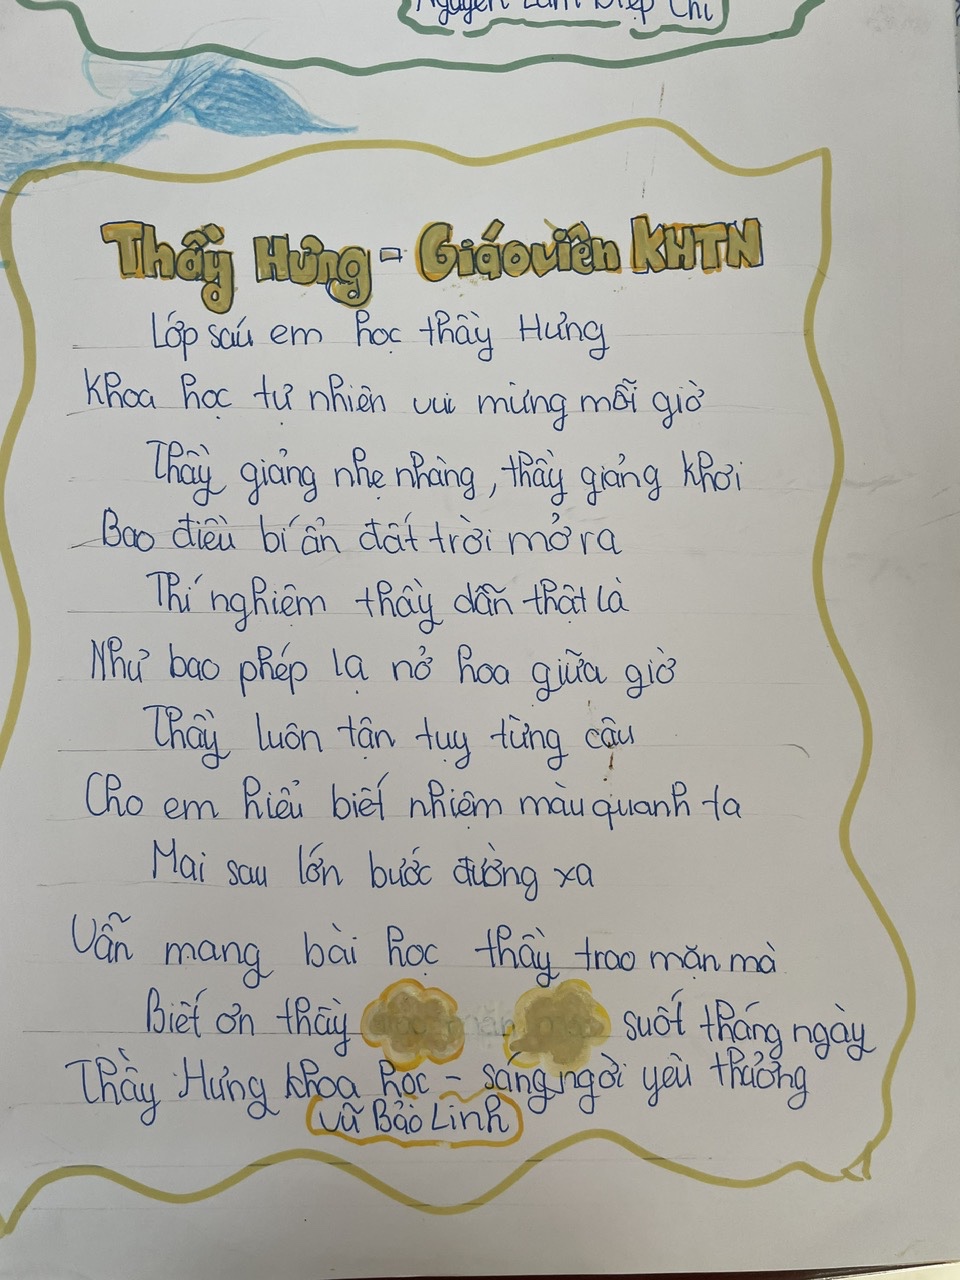 Nguyễn Lâm Diệp Chi
Thầy Hưng - Giáo viên KHTN
Lớp sáu em học thầy Hưng
Khoa học tự nhiên vui mừng mỗi giờ
Thầy giảng nhẹ nhàng, thầy giảng khơi
Bao điều bí ẩn đất trời mở ra
Thí nghiệm thầy dẫn thật là
Như bao phép lạ nở hoa giữa giờ
Thầy luôn tận tụy từng câu
Cho em hiểu biết nhiệm màu quanh ta
Mai sau lớn bước đường xa
Vẫn mang bài học thầy trao mặn mà
Biết ơn thầy suốt tháng ngày
Thầy Hưng khoa học - sáng ngời yêu thưởng
Vũ Bảo Linh